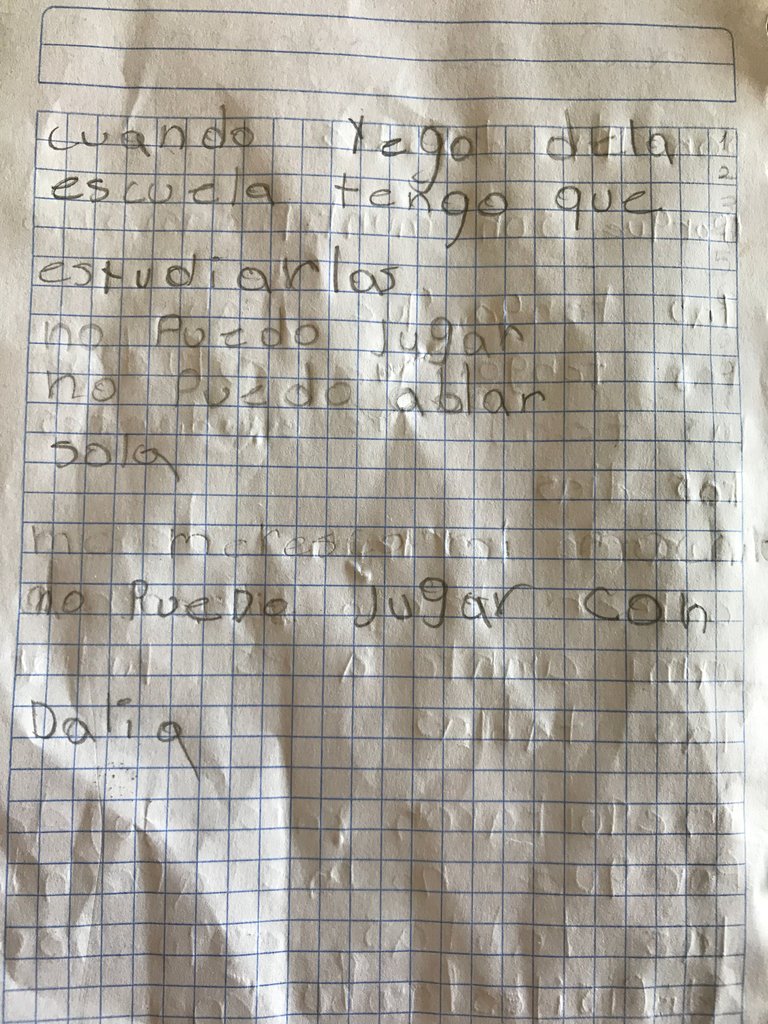 cuando Yego dela
escuela tengo que
estudiarlas
no Puedo jugar
no Puedo ablar
sola
no PueDo jugar con
Dalia